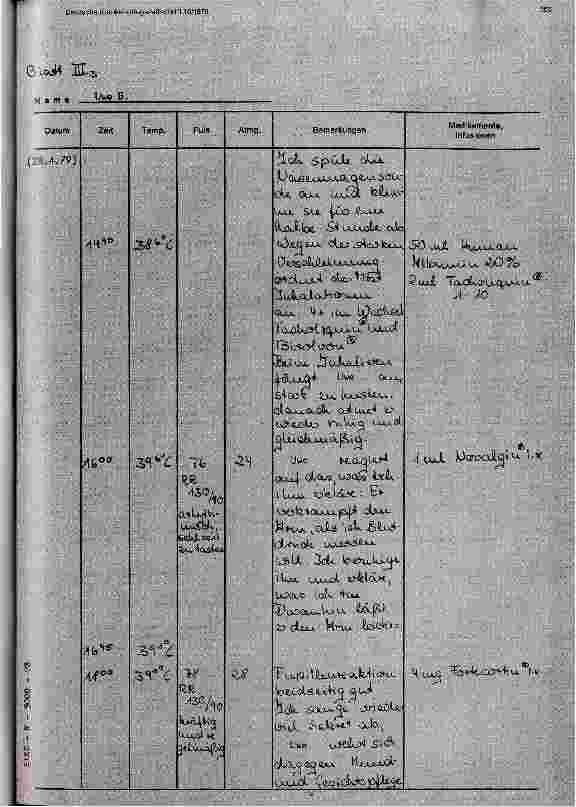 Deutsche Krankenpflegezeitschrift 10/1979
Blatt III
Name Uwe B.
Datum Zeit Temp. Puls Atmg. Bemerkungen Medikamente, Infusionen
(28.1.79) Ich spüle die
Nasenmagenson-
de an und klem-
me sie für eine
halbe Stunde ab
14 38 °C Wegen der starken 50 ml Human
Verschleimung Albumin 20%
ordnet der Arzt 2 ml Tacholiquin®
Inhalationen 1-10
an 4x im Wechsel
Tacholiquin® und
Bisolvon®
Beim Inhalieren
fängt Uwe an,
stark zu husten.
danach atmet er
wieder ruhig und
gleichmäßig.
16 00 39 °C 76 24 Uwe reagiert 1 ml Novalgin® i.v.
RR auf das, was ich
130/90 ihm erkläre: Er
arhyth- verkrampft den
misch, Arm, als ich Blut
schlecht druck messen
zu tasten will. Ich beruhige
ihn und erkläre,
was ich tue
Daraufhin läßt
er den Arm locker
16 45 39 °C
18 00 39 °C 78 28 Pupillenreaktion 4 mg Fortecortin® i.v.
RR beidseitig gut
130/90 Ich sauge wieder
kräftig viel Sekret ab,
und re- Uwe wehrt sich
gelmäßig dagegen Mund
und Gesichtspflege